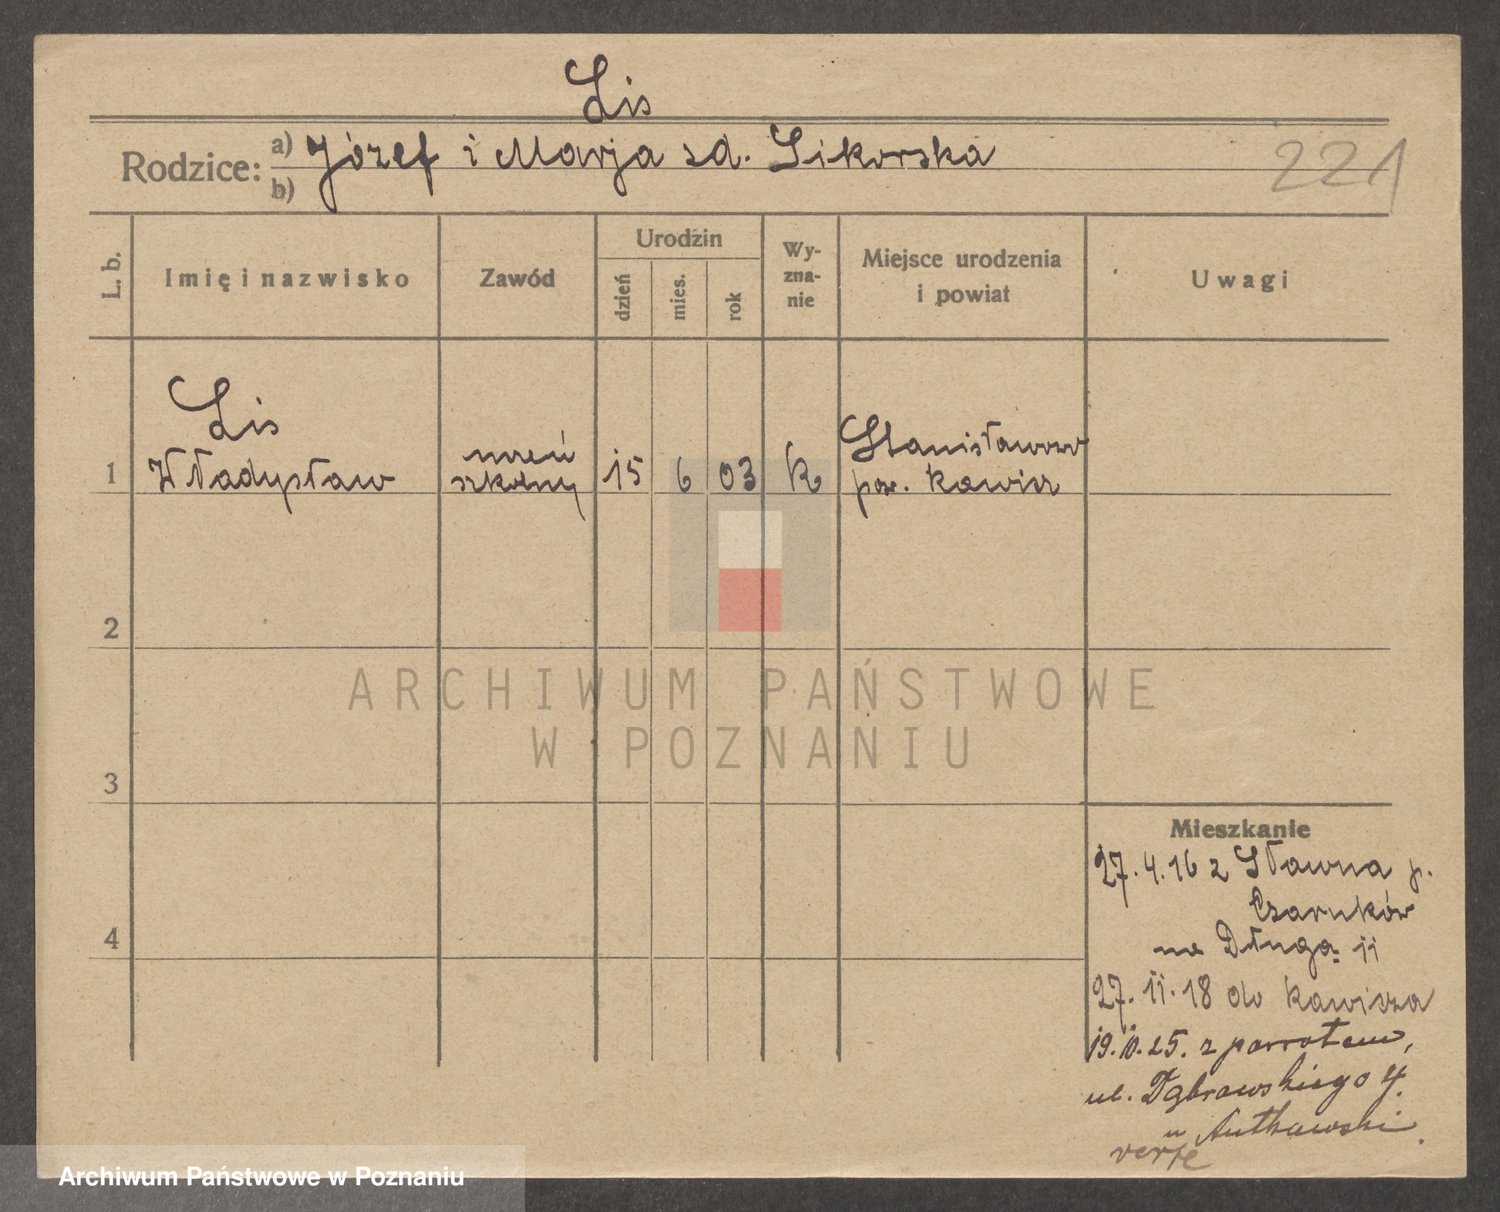 Lis
Rodzice: a) Józef i Marja zd. Sikorska
b)
221
L. b.
Imię i nazwisko
Zawód
Urodzin
dzień
mies.
rok
Wy-
zna-
nie
Miejsce urodzenia
i powiat
Uwagi
Lis
1 Władysław
uczeń
szkolny
15 6 03 k
Stanisławowo
pow. Rawicz
2
3
4
ARCHIWUM PAŃSTWOWE
W POZNANIU
Mieszkanie
27.4.16 z Sławna p.
Czarnków
na Długą 11
27.11.18 do Rawicza
19.10.25. z powrotem,
ul. Dąbrowskiego 4.
u
verte
Archiwum Państwowe w Poznaniu